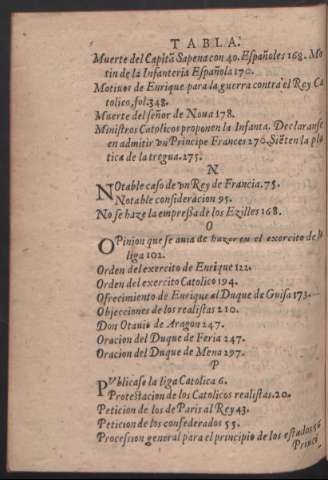 TABLA.
Muerte del Capitã Sapena con 40. Españoles 168. Mo
tin de la Infanteria Española 170.
Motiuos de Enrique para la guerra contra el Rey Ca
tolico, fol. 348.
Muerte del señor de Noua 178.
Ministros Catolicos proponen la Infanta. Declaranse
en admitir vn Principe Frances 270. Siẽten la plà
tica de la tregua. 275.
N
NOtable caso de vn Rey de Francia. 75.
Notable consideracion 95.
No se haze la empressa de los Ezilles 168.
O
OPinion que se auia de hazer en el exercito de la
liga 102.
Orden del exercito de Enrique 122.
Orden del exercito Catolico 194.
Ofrecimiento de Enrique al Duque de Guisa 173.
Objecciones de los realistas 210.
Don Otauio de Aragon 247.
Oracion del Duque de Feria 247.
Oracion del Duque de Mena 297.
P
PVblicase la liga Catolica 6.
Protestacion de los Catolicos realistas. 20.
Peticion de los de Paris al Rey 43.
Peticion de los confederados 55.
Procession general para el principio de los estados 56
Princi